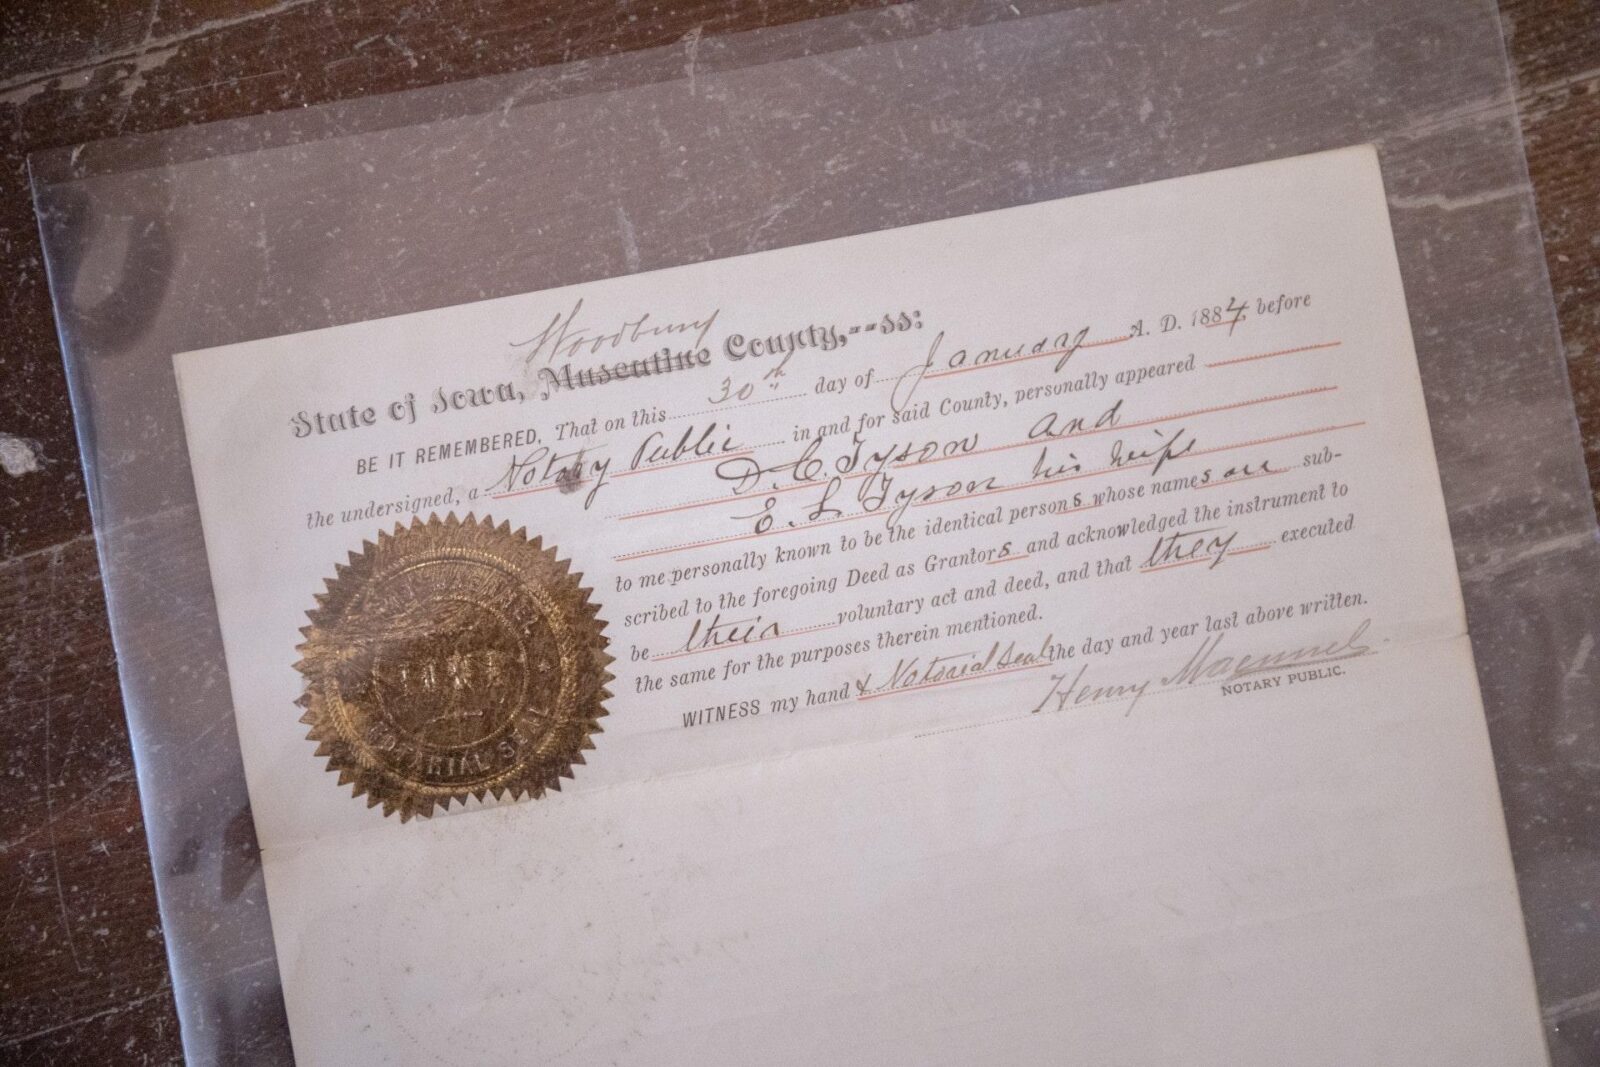 Woodbury
State of Iowa, Muscatine County,--ss:
BE IT REMEMBERED, That on this 30th day of January A. D. 1884 before
the undersigned, a Notary Public in and for said County, personally appeared
D. C. Tyson and
E. L. Tyson his wife
to me personally known to be the identical persons whose names are sub-
scribed to the foregoing Deed as Grantors and acknowledged the instrument to
be their voluntary act and deed, and that they executed
the same for the purposes therein mentioned.
WITNESS my hand & Notarial Seal the day and year last above written.
Henry
NOTARY PUBLIC.
NOTARIAL SEAL